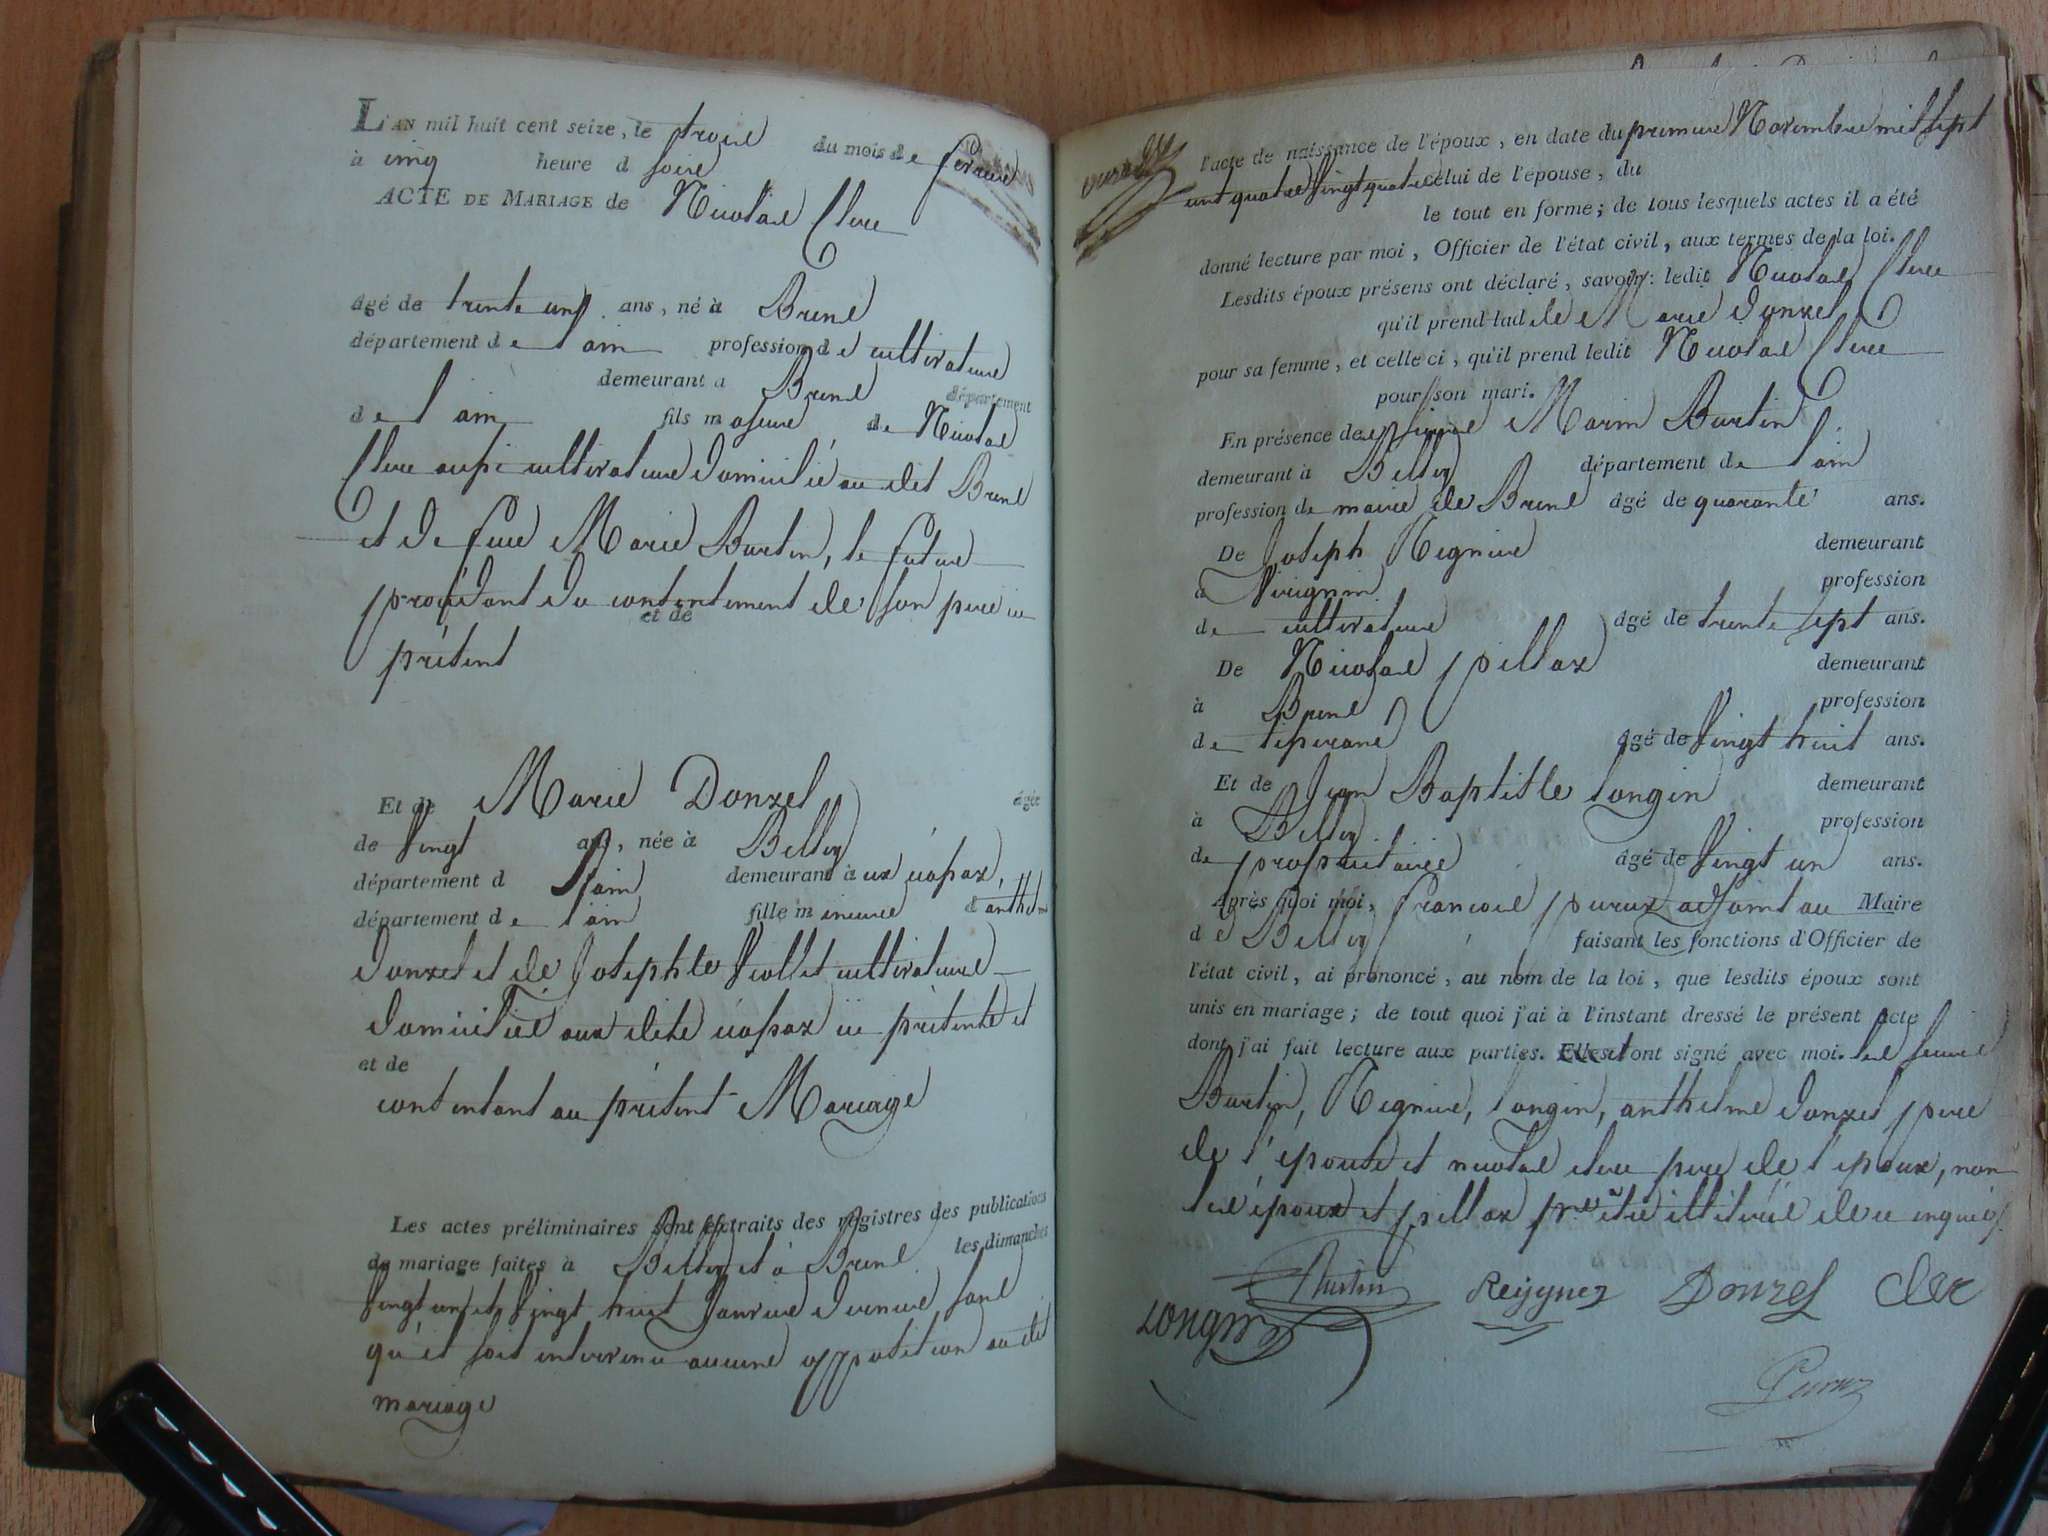 L'AN mil huit cent seize, le trois du mois de fevrier
à cinq heure d soire
ACTE DE MARIAGE de Nicolas Clerc
âgé de trente un ans, né à Brens
département de l'ain profession de cultivateur
demeurant a Brens département
de l'ain fils majeur de Nicolas
Clerc aussi cultivateur domicilié au dit Brens
et de feue Marie Burtin, le futur
procédant du consentement de son pere ici
et de
présent
Et de Marie Donzel âgée
de vingt ans, née à Belley
département d l'ain demeurant à ux
département de l'ain fille mineure d'anthelme
donzel et de Josephte Viollet cultivateurs
domiciliés aux dits ici présents et
et de
consentant au présent Mariage
Les actes préliminaires sont extraits des registres des publications
de mariage faites à Belley et à Brens les dimanches
vingt un et vingt huit Janvier dernier, sans
qu'il soit intervenu aucune opposition au dit
mariage
l'acte de naissance de l'époux, en date du premier Novembre mil sept
cent quatre vingt quatre celui de l'épouse, du
le tout en forme; de tous lesquels actes il a été
donné lecture par moi, Officier de l'état civil, aux termes de la loi.
Lesdits époux présens ont déclaré, savoir: ledit Nicolas Clerc
qu'il prend lad de Marie donzel
pour sa femme, et celle ci, qu'il prend ledit Nicolas Clerc
pour son mari.
En présence de Marin Burtin
demeurant à Belley département de l'ain
profession de maire de Brens âgé de quarante ans.
De Joseph Regnier demeurant
à Virignin profession
de cultivateur âgé de trente sept ans.
De Nicolas pillax demeurant
à Brens profession
de tisserand âgé de vingt huit ans.
Et de Jean Baptiste Longin demeurant
à Belley profession
de propriétaire âgé de vingt un ans.
Après quoi moi, françois peruz adjoint au Maire
de Belley faisant les fonctions d'Officier de
l'état civil, ai prononcé, au nom de la loi, que lesdits époux sont
unis en mariage; de tout quoi j'ai à l'instant dressé le présent acte
dont j'ai fait lecture aux parties. Elles ont signé avec moi.
Burtin, Regnier, Longin, anthelme donzel pere
de l'épouse et nicolas clerc pere de l'époux, non
les époux et pillax pr etre illitérés de ce enquis
Burtin Reygnez Donzel Clerc
Longin
Peruz